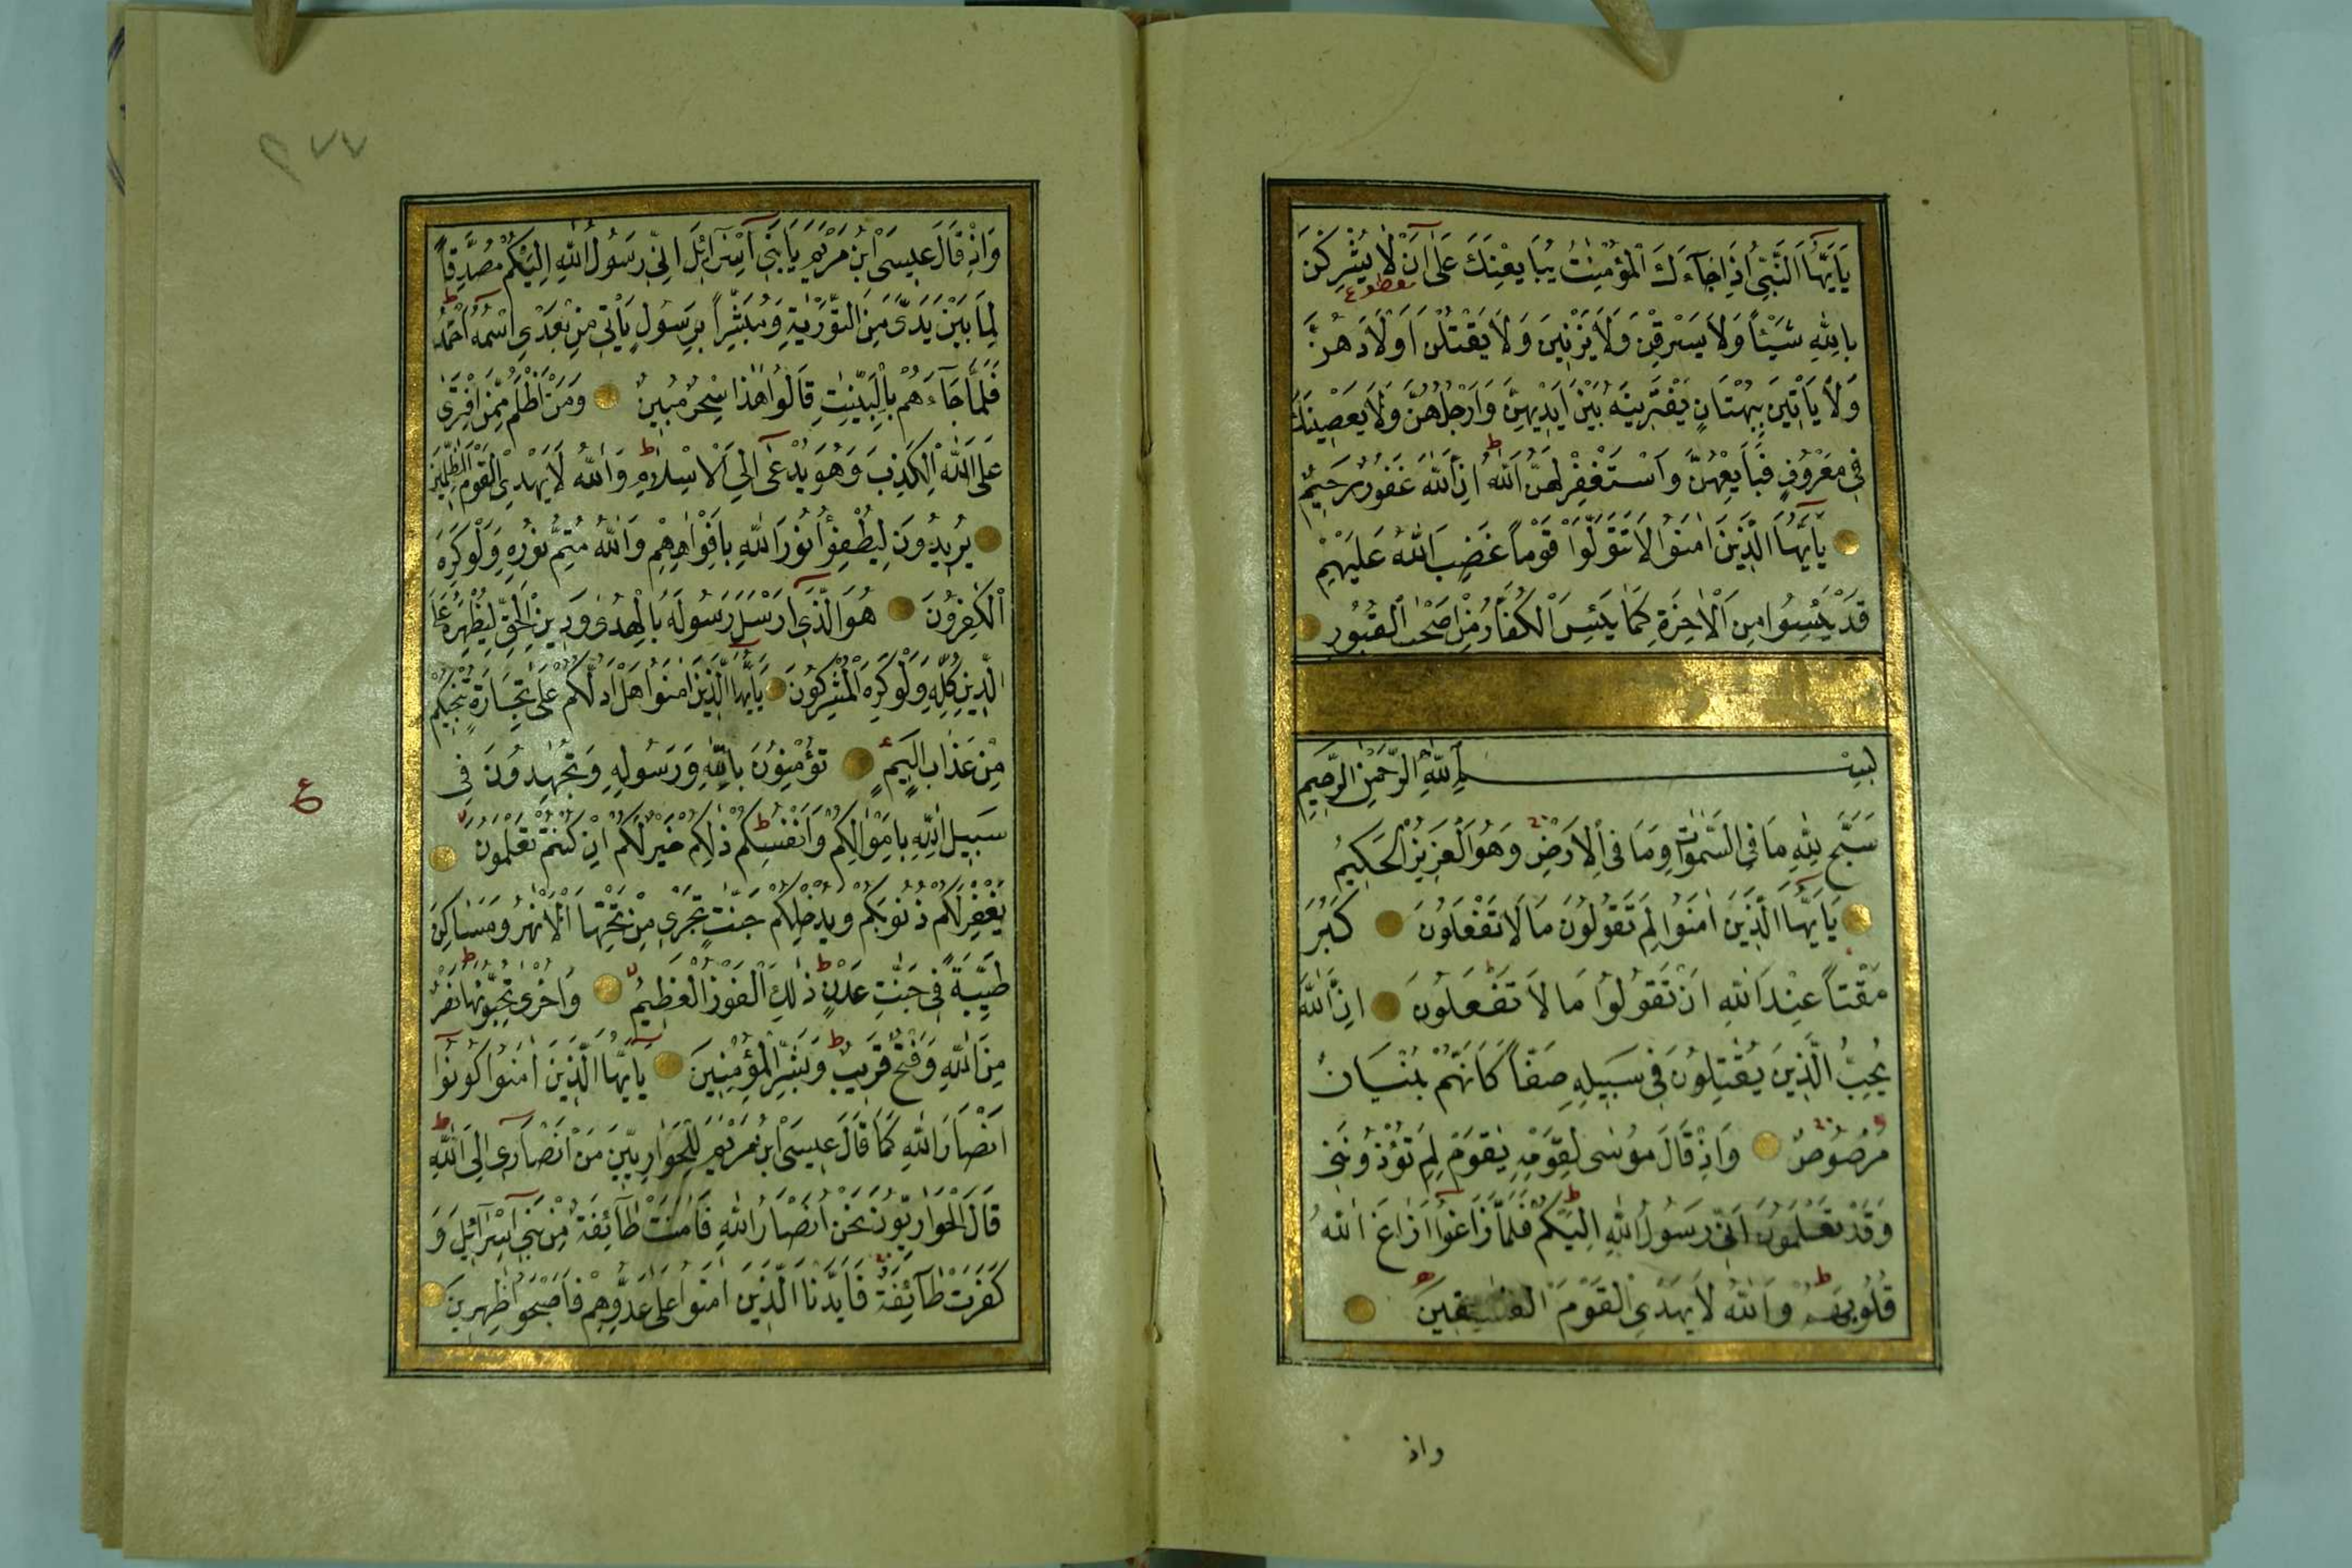 يَاۤاَيُّهَا النَّبِىُّ اِذَا جَاۤءَكَ الْمُؤْمِنٰتُ يُبَايِعْنَكَ عَلٰۤى اَنْ لَا يُشْرِكْنَ
مقطوع
بِاللّٰهِ شَيْئًا وَلَا يَسْرِقْنَ وَلَا يَزْنِيْنَ وَلَا يَقْتُلْنَ اَوْلَادَهُنَّ
وَلَا يَاْتِيْنَ بِبُهْتَانٍ يَفْتَرِيْنَهُ بَيْنَ اَيْدِيْهِنَّ وَاَرْجُلِهِنَّ وَلَا يَعْصِيْنَكَ
فِى مَعْرُوْفٍ فَبَايِعْهُنَّ وَاسْتَغْفِرْ لَهُنَّ اللّٰهَ ط اِنَّ اللّٰهَ غَفُوْرٌ رَحِيْمٌ
يَاۤاَيُّهَا الَّذِيْنَ اٰمَنُوْا لَا تَتَوَلَّوْا قَوْمًا غَضِبَ اللّٰهُ عَلَيْهِمْ
قَدْ يَئِسُوْا مِنَ الْاٰخِرَةِ كَمَا يَئِسَ الْكُفَّارُ مِنْ اَصْحٰبِ الْقُبُوْرِ
بِسْمِ اللّٰهِ الرَّحْمٰنِ الرَّحِيْمِ
سَبَّحَ لِلّٰهِ مَا فِى السَّمٰوٰتِ وَمَا فِى الْاَرْضِ وَهُوَ الْعَزِيْزُ الْحَكِيْمُ
يَاۤاَيُّهَا الَّذِيْنَ اٰمَنُوْا لِمَ تَقُوْلُوْنَ مَا لَا تَفْعَلُوْنَ كَبُرَ
مَقْتًا عِنْدَ اللّٰهِ اَنْ تَقُوْلُوْا مَا لَا تَفْعَلُوْنَ اِنَّ اللّٰهَ
يُحِبُّ الَّذِيْنَ يُقٰتِلُوْنَ فِى سَبِيْلِهِ صَفًّا كَاَنَّهُمْ بُنْيَانٌ
مَرْصُوْصٌ وَاِذْ قَالَ مُوْسٰى لِقَوْمِهِ يٰقَوْمِ لِمَ تُؤْذُوْنَنِى
وَقَدْ تَعْلَمُوْنَ اَنِّى رَسُوْلُ اللّٰهِ اِلَيْكُمْ ط فَلَمَّا زَاغُوْۤا اَزَاغَ اللّٰهُ
قُلُوْبَهُمْ ط وَاللّٰهُ لَا يَهْدِى الْقَوْمَ الْفٰسِقِيْنَ
واذ
٢٧٧
وَاِذْ قَالَ عِيْسَى ابْنُ مَرْيَمَ يَا بَنِىۤ اِسْرَاۤئِلَ اِنِّى رَسُوْلُ اللّٰهِ اِلَيْكُمْ مُصَدِّقًا
لِمَا بَيْنَ يَدَىَّ مِنَ التَّوْرٰيةِ وَمُبَشِّرًا بِرَسُوْلٍ يَاْتِى مِنْ بَعْدِى اسْمُهُۤ اَحْمَدُ ط
فَلَمَّا جَاۤءَهُمْ بِالْبَيِّنٰتِ قَالُوْا هٰذَا سِحْرٌ مُبِيْنٌ وَمَنْ اَظْلَمُ مِمَّنِ افْتَرٰى
عَلَى اللّٰهِ الْكَذِبَ وَهُوَ يُدْعٰۤى اِلَى الْاِسْلَامِ ط وَاللّٰهُ لَا يَهْدِى الْقَوْمَ الظّٰلِمِيْنَ
يُرِيْدُوْنَ لِيُطْفِؤُا نُوْرَ اللّٰهِ بِاَفْوَاهِهِمْ وَاللّٰهُ مُتِمُّ نُوْرِهِ وَلَوْ كَرِهَ
الْكٰفِرُوْنَ هُوَ الَّذِىۤ اَرْسَلَ رَسُوْلَهُ بِالْهُدٰى وَدِيْنِ الْحَقِّ لِيُظْهِرَهُ عَلَى
الدِّيْنِ كُلِّهِ وَلَوْ كَرِهَ الْمُشْرِكُوْنَ يَاۤاَيُّهَا الَّذِيْنَ اٰمَنُوْا هَلْ اَدُلُّكُمْ عَلٰى تِجَارَةٍ تُنْجِيْكُمْ
مِنْ عَذَابٍ اَلِيْمٍ تُؤْمِنُوْنَ بِاللّٰهِ وَرَسُوْلِهِ وَتُجٰهِدُوْنَ فِى
ع
سَبِيْلِ اللّٰهِ بِاَمْوٰالِكُمْ وَاَنْفُسِكُمْ ط ذٰلِكُمْ خَيْرٌ لَكُمْ اِنْ كُنْتُمْ تَعْلَمُوْنَ
يَغْفِرْ لَكُمْ ذُنُوْبَكُمْ وَيُدْخِلْكُمْ جَنّٰتٍ تَجْرِى مِنْ تَحْتِهَا الْاَنْهٰرُ وَمَسَاكِنَ
طَيِّبَةً فِى جَنّٰتِ عَدْنٍ ط ذٰلِكَ الْفَوْزُ الْعَظِيْمُ وَاُخْرٰى تُحِبُّوْنَهَا ط نَصْرٌ
مِنَ اللّٰهِ وَفَتْحٌ قَرِيْبٌ ط وَبَشِّرِ الْمُؤْمِنِيْنَ يَاۤاَيُّهَا الَّذِيْنَ اٰمَنُوْا كُوْنُوْۤا
اَنْصَارَ اللّٰهِ كَمَا قَالَ عِيْسَى ابْنُ مَرْيَمَ لِلْحَوَارِيِّيْنَ مَنْ اَنْصَارِىۤ اِلَى اللّٰهِ ط
قَالَ الْحَوَارِيُّوْنَ نَحْنُ اَنْصَارُ اللّٰهِ فَاٰمَنَتْ طَاۤئِفَةٌ مِنْ بَنِىۤ اِسْرَاۤئِلَ وَ
كَفَرَتْ طَاۤئِفَةٌ فَاَيَّدْنَا الَّذِيْنَ اٰمَنُوْا عَلٰى عَدُوِّهِمْ فَاَصْبَحُوْا ظٰهِرِيْنَ